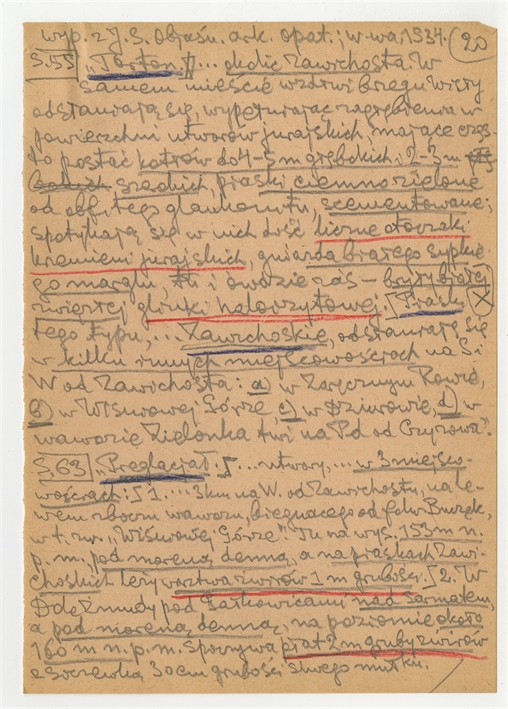 wyp. z J. S. Objaśn. ark. opat.; W-wa, 1934. (20)
S.55 „Torton." [... okolic Zawichosta. W
samem mieście wzdłuż brzegu Wisły
odsłaniają się, wypełniając zagłębienia w
powierzchni utworów jurajskich, mające częs-
to postać kotłów do 4-5 m głębokich i 2-3 m
średnich, piaski ciemnozielone
od obfitego glaukonitu, scementowane;
spotykają się w nich dość liczne otoczaki
krzemieni jurajskich, gniazda białego sypkie-
go marglu, i owdzie zaś – bryły białej
zwięzłej glinki haloizytowej. [Piaski
tego typu,... Zawichoskie, odsłaniają się
w kilku innych miejscowościach na S i
W od Zawichosta: a) w Zaręcznym Rowie,
b) w Wiśniowej Górze, c) w Dziurowie, d) w
wąwozie Zielonka Awi na Pd od Czyżowa".
S.63 „Preglacjał". [... utwory,... w 3 miejsco-
wościach: [1.... 3 km na W. od Zawichostu, na le-
wem zboczu wąwozu, biegnącego od folw. Burzek,
w t. zw. „Wiśniowej Górze". Tu na wys. 153 m n.
p. m., pod moreną denną, a na piaskach Zawi-
choskich leży warstwa żwirów 1 m grubości. [2. W
Dole Żmudy pod Garkowicami nad Sarmatem,
a pod moreną denną, na poziomie około
160 m n. p. m. spoczywa płat 2 m gruby żwirów
z soczewką 30 cm grubości siwego mułku.